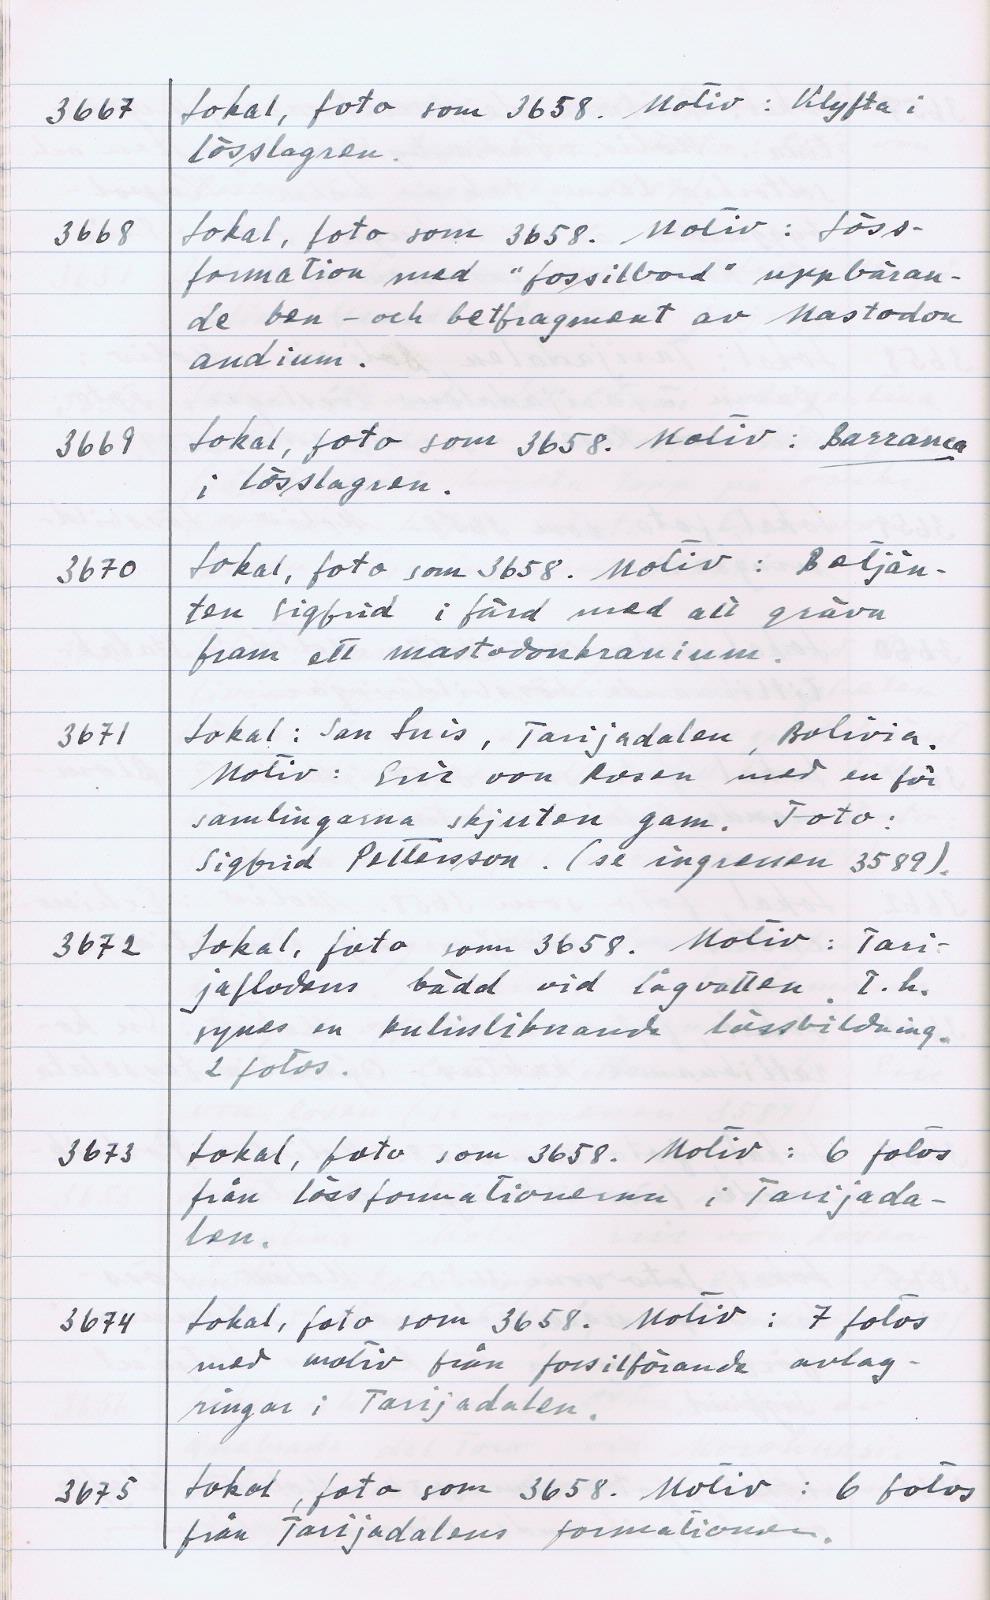 3667 Lokal, foto som 3658. Motiv : Klyfta i
lösslagren.
3668 Lokal, foto som 3658. Motiv : Löss-
formation med "fossilbord" uppbäran-
de ben - och betfragment av Mastodon
andium.
3669 Lokal, foto som 3658. Motiv : Barranca
i lösslagren.
3670 Lokal, foto som 3658. Motiv : Betjän-
ten Sigfrid i färd med att gräva
fram ett mastodonkranium.
3671 Lokal : San Luis, Tarijadalen, Bolivia.
Motiv : Eric von Rosen med en för
samlingarna skjuten gam. Foto :
Sigfrid Pettersson. (se ingressen 3589).
3672 Lokal, foto som 3658. Motiv : Tari-
jaflodens bädd vid lågvatten. T.h.
synes en kulissliknande lössbildning.
2 fotos.
3673 Lokal, foto som 3658. Motiv : 6 fotos
från lössformationerna i Tarijada-
len.
3674 Lokal, foto som 3658. Motiv : 7 fotos
med motiv från fossilförande avlag-
ringar i Tarijadalen.
3675 Lokal, foto som 3658. Motiv : 6 fotos
från Tarijadalens formationer.